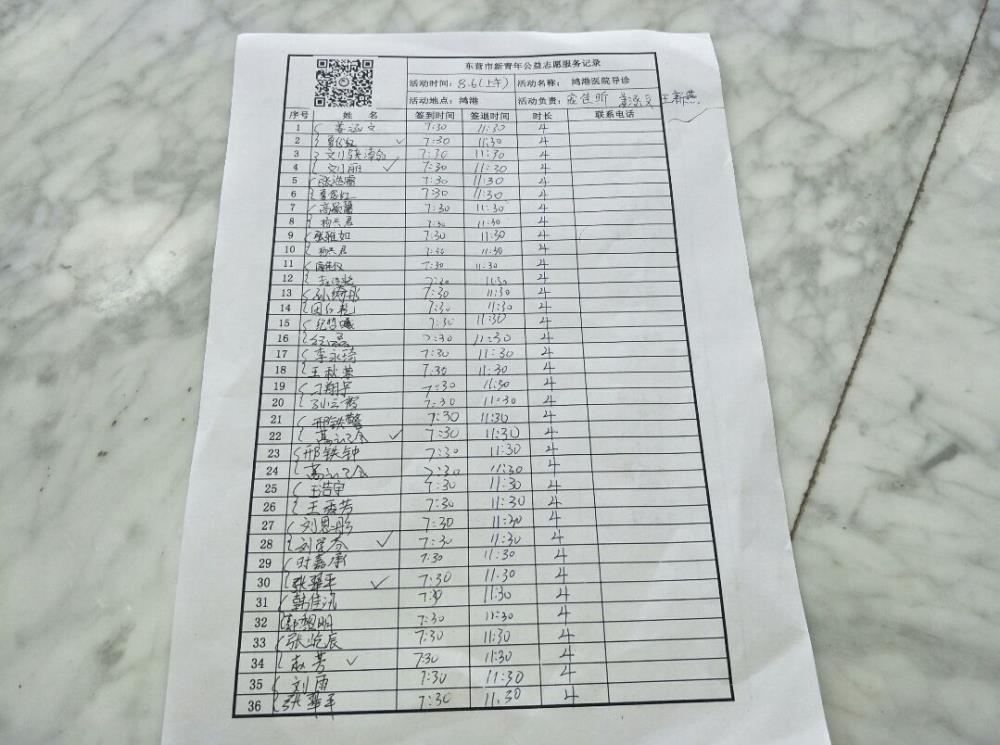 东营市新青年公益志愿服务记录
活动时间：8.6(上午) 活动名称： 鸿港医院导诊
活动地点：鸿港 活动负责：姜涵文 王新燕
序号 姓 名 签到时间 签退时间 时长 联系电话
1 姜涵文 7:30 11:30 4
2 7:30 11:30 4
3 7:30 11:30 4
4 刘丽 ✓ 7:30 11:30 4
5 7:30 11:30 4
6 7:30 11:30 4
7 7:30 11:30 4
8 杨兴君 7:30 11:30 4
9 张雅如 7:30 11:30 4
10 杨兴君 7:30 11:30 4
11 7:30 11:30 4
12 7:30 11:30 4
13 孙绮彤 7:30 11:30 4
14 田红礼 7:30 11:30 4
15 7:30 11:30 4
16 7:30 11:30 4
17 李永琦 7:30 11:30 4
18 王秋菊 7:30 11:30 4
19 刁翔宇 7:30 11:30 4
20 7:30 11:30 4
21 邢铁警 7:30 11:30 4
22 ✓ 7:30 11:30 4
23 邢铁钟 7:30 11:30 4
24 7:30 11:30 4
25 王浩宇 7:30 11:30 4
26 王秀芳 7:30 11:30 4
27 刘恩彤 7:30 11:30 4
28 ✓ 7:30 11:30 4
29 时嘉康 7:30 11:30 4
30 张翠平 ✓ 7:30 11:30 4
31 韩佳汛 7:30 11:30 4
32 7:30 11:30 4
33 张屹辰 7:30 11:30 4
34 赵芳 ✓ 7:30 11:30 4
35 刘雨 7:30 11:30 4
36 张翠平 7:30 11:30 4